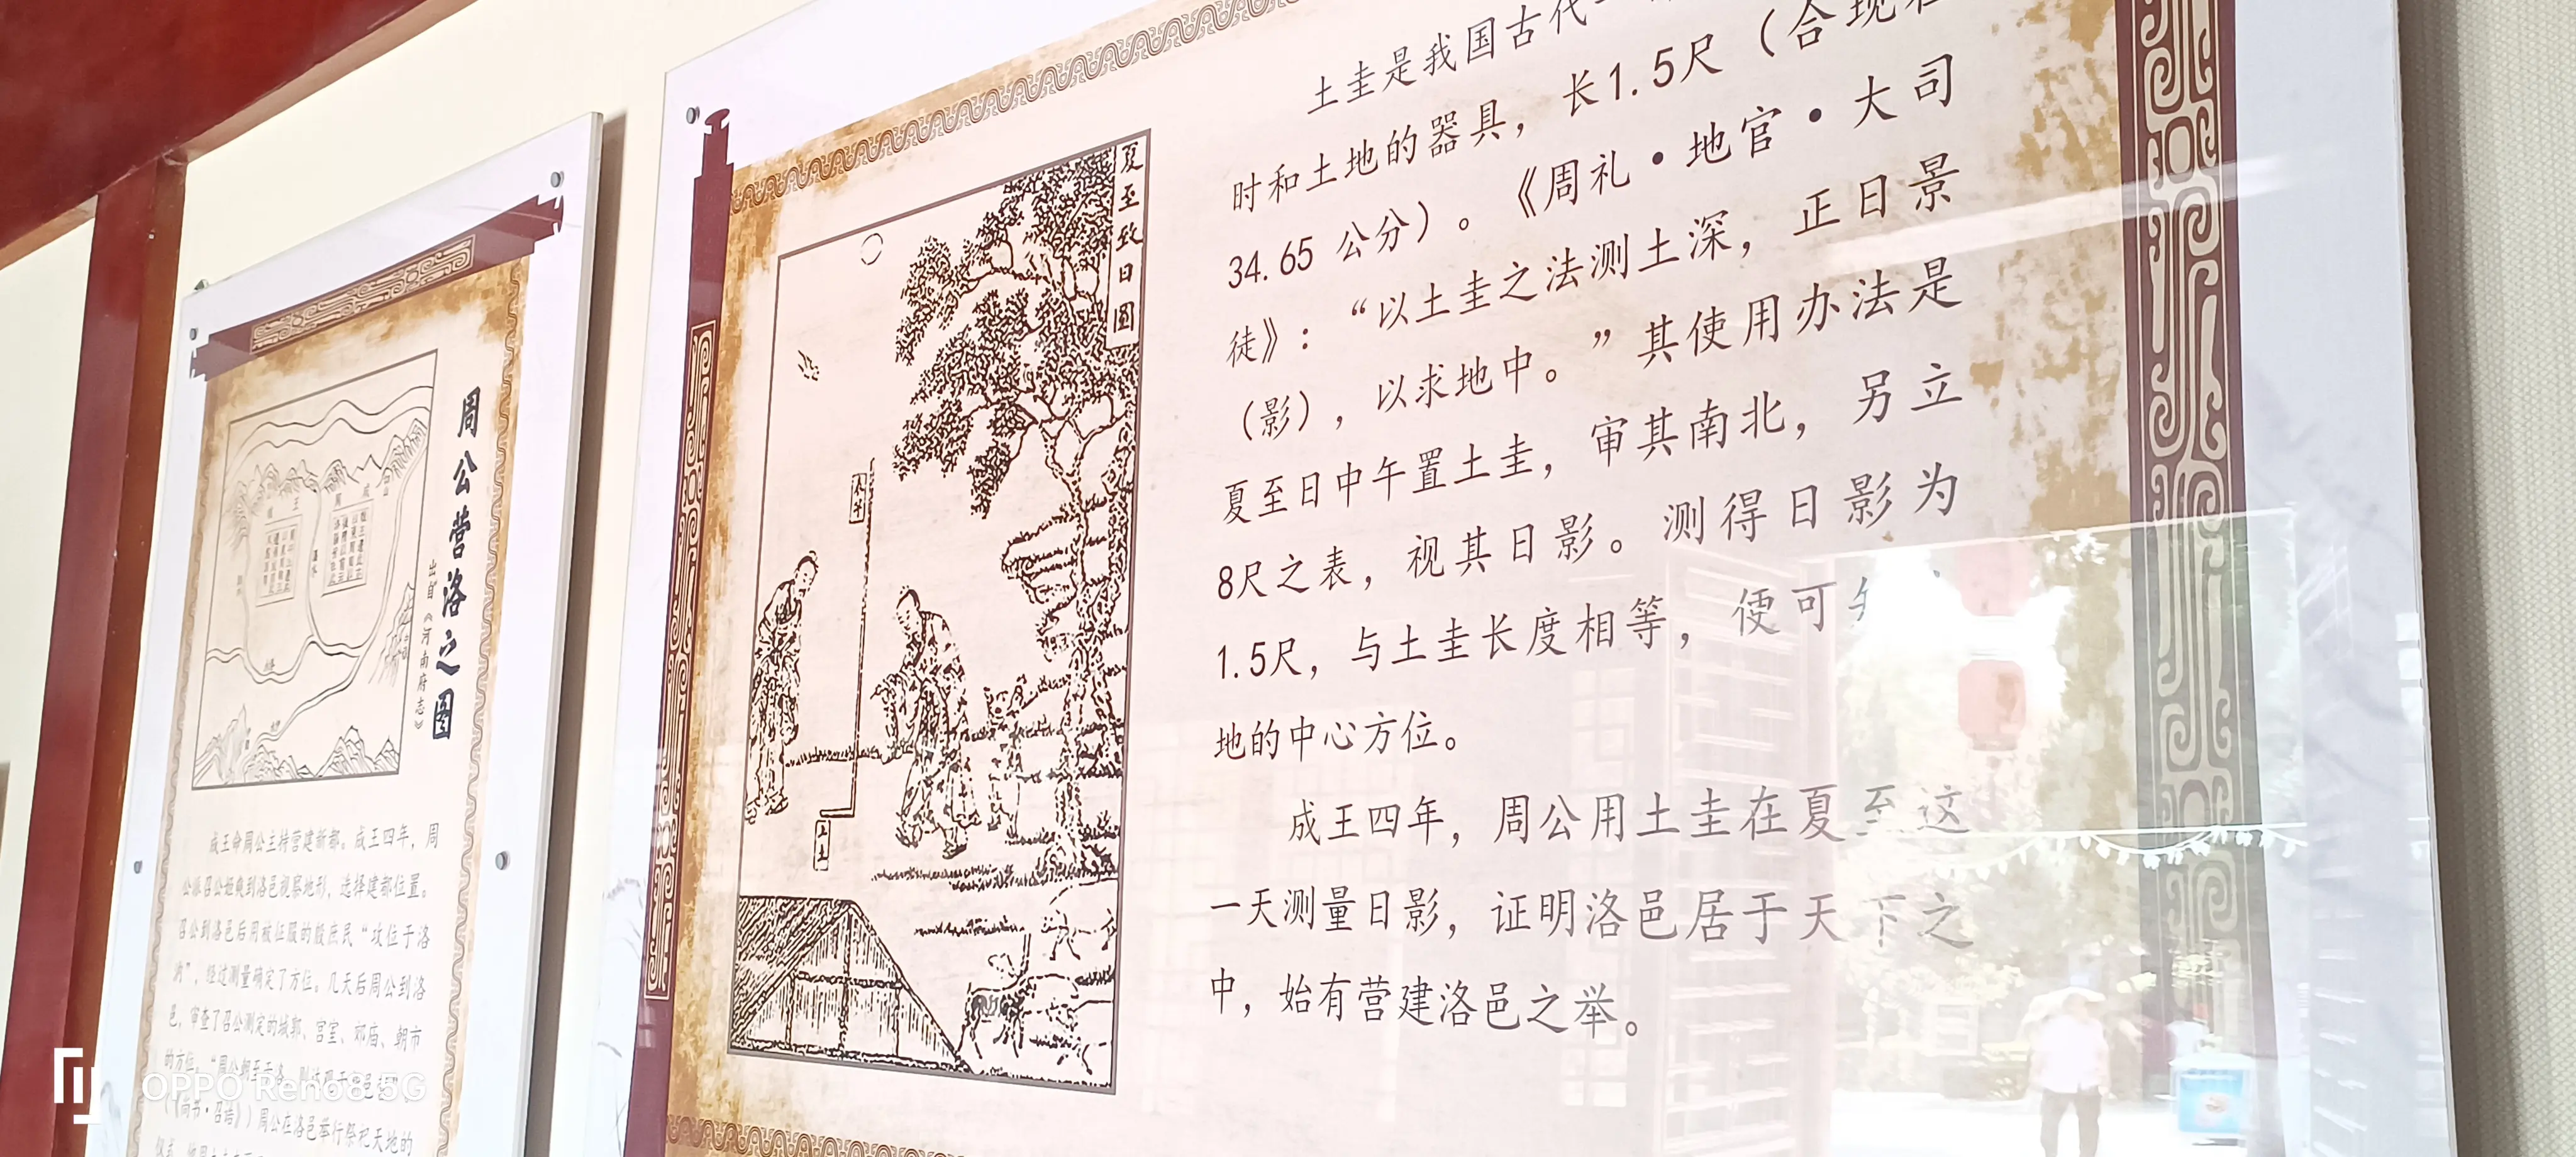 周公营洛之图
出自《河南府志》
成王命周公主持营建新都。成王四年，周
公派召公姬奭到洛邑视察地形，选择建都位置。
召公到洛邑后用被征服的殷庶民“攻位于洛
汭”，经过测量确定了方位。几天后周公到洛
邑，审查了召公测定的城郭、宫室、郊庙、朝市
的方位。“周公朝至于洛，则达观于
（《尚书·召诰》）周公在洛邑举行祭祀天地的
夏至致日图
土圭是我国古代
时和土地的器具，长1.5尺（合现在
34.65 公分）。《周礼·地官·大司
徒》：“以土圭之法测土深，正日景
（影），以求地中。”其使用办法是
夏至日中午置土圭，审其南北，另立
8尺之表，视其日影。测得日影为
1.5尺，与土圭长度相等，便可
地的中心方位。
成王四年，周公用土圭在夏至这
一天测量日影，证明洛邑居于天下之
中，始有营建洛邑之举。
OPPO Reno8 5G